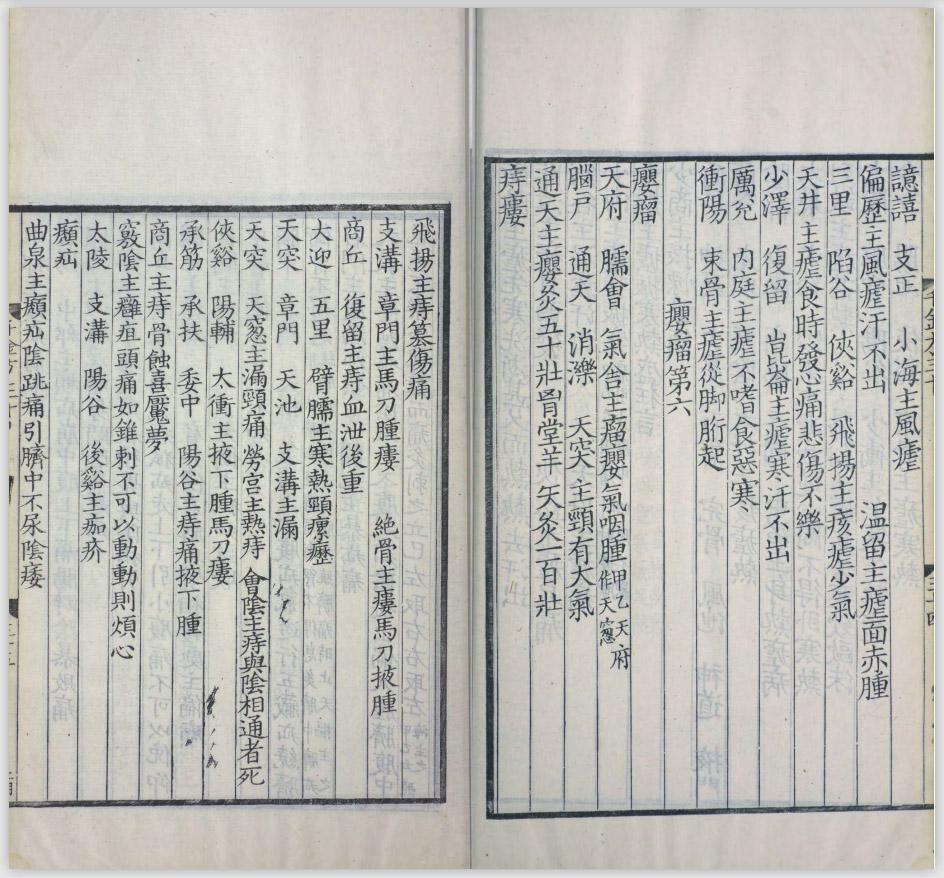 譩譆 支正 小海主風瘧
偏歷主風瘧汗不出 溫留主瘧面赤腫
三里 陷谷 俠谿 飛揚主痎瘧少氣
天井主瘧食時發心痛悲傷不樂
少澤 復留 崑崙主瘧寒汗不出
厲兌 內庭主瘧不嗜食惡寒
衝陽 束骨主瘧從脚胻起
癭瘤第六
癭瘤
天府 臑會 氣舍主瘤癭氣咽腫甲乙天府作天窻
腦戶 通天 消濼 天突主頸有大氣
通天主癭灸五十壯胷堂羊矢灸一百壯
痔瘻
飛揚主痔篡傷痛
支溝 章門主馬刀腫瘻 絶骨主瘻馬刀掖腫
商丘 復留主痔血泄後重
大迎 五里 臂臑主寒熱頸瘰癧
天突 章門 天池 支溝主漏
天突 天窻主漏頸痛 勞宮主熱痔 會陰主痔與陰相通者死
俠谿 陽輔 太衝主掖下腫馬刀瘻
承筋 承扶 委中 陽谷主痔痛掖下腫
商丘主痔骨蝕喜魘夢
竅陰主癰疽頭痛如錐刺不可以動動則煩心
太陵 支溝 陽谷 後谿主痂疥
㿗疝
曲泉主㿗疝陰跳痛引臍中不尿陰痿